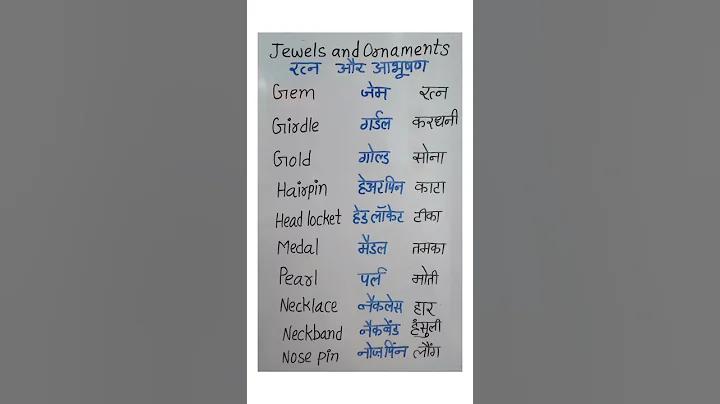 Jewels and Ornaments
रत्न और आभूषण
Gem जेम रत्न
Girdle गर्डल करधनी
Gold गोल्ड सोना
Hairpin हेअरपिन काटा
Head locket हेड लॉकेट टीका
Medal मैडल तमका
Pearl पर्ल मोती
Necklace नैकलेस हार
Neckband नैकबैंड हँसुली
Nose pin नोजपिंन लौंग